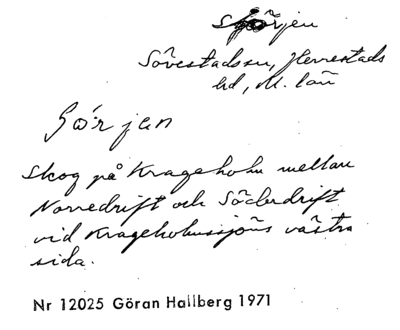 Sörjen
Sövestadssn, Herrestads
hd, M. län
Görjen
Skog på Krageholm mellan
Norredrift och Söderdrift
vid Krageholmssjöns västra
sida.
Nr 12025 Göran Hallberg 1971